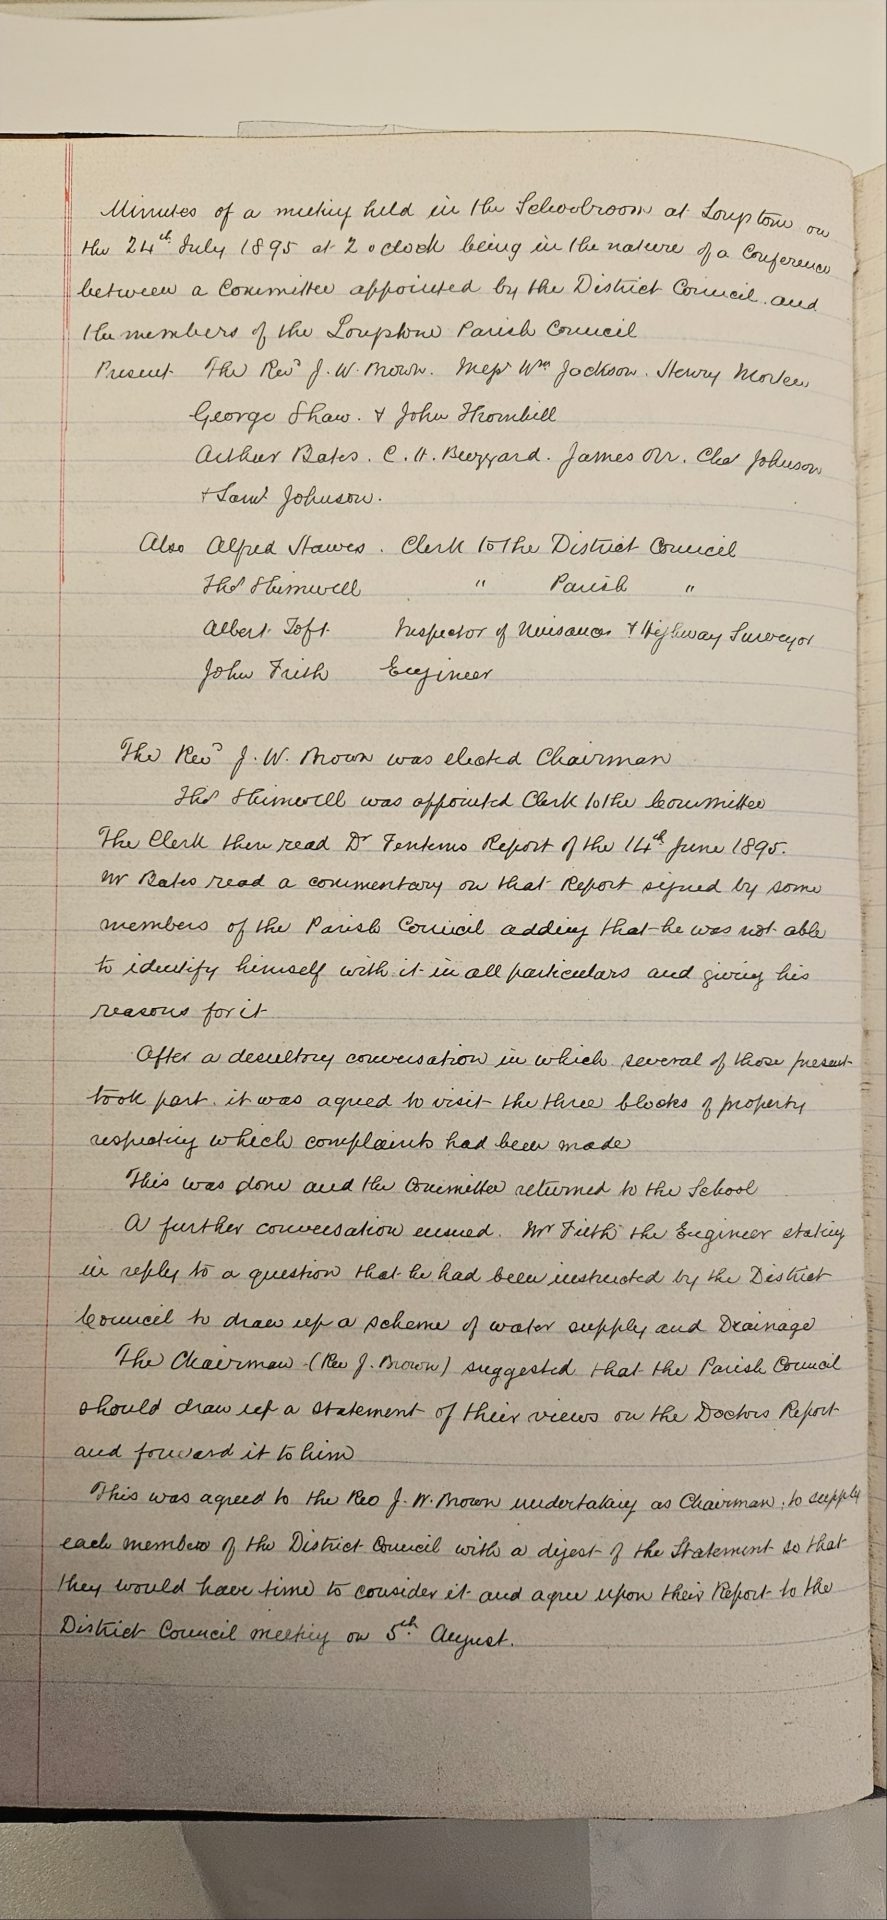 Minutes of a meeting held in the Schoolroom at Youlgrave on
the 24th July 1895 at 2 oclock being in the nature of a Conference
between a Committee appointed by the District Council and
the members of the Parish Council
Present The Revd J. W. Brown. Messrs Wm Jackson. Henry
George Shaw. & John Thornhill
Arthur Bates. C. H. Buzzard. James Orr. Chas Johnson
& Saml Johnson.
Also Alfred Hawes. Clerk to the District Council
Thos Shimwell " Parish "
Albert Toft Inspector of Nuisances & Highway Surveyor
John Frith Engineer
The Revd J. W. Brown was elected Chairman
Thos Shimwell was appointed Clerk to the Committee
The Clerk then read Dr Report of the 14th June 1895.
Mr Bates read a commentary on that Report signed by some
members of the Parish Council adding that he was not able
to identify himself with it in all particulars and giving his
reasons for it
After a desultory conversation in which several of those present
took part. it was agreed to visit the three blocks of property
respecting which complaints had been made
This was done and the Committee returned to the School
A further conversation ensued. Mr Frith the Engineer stating
in reply to a question that he had been instructed by the District
Council to draw up a scheme of water supply and Drainage
The Chairman (Rev J. Brown) suggested that the Parish Council
should draw up a statement of their views on the Doctors Report
and forward it to him
This was agreed to the Rev J. W. Brown undertaking as Chairman, to supply
each member of the District Council with a digest of the Statement so that
they would have time to consider it and agree upon their Report to the
District Council meeting on 5th August.